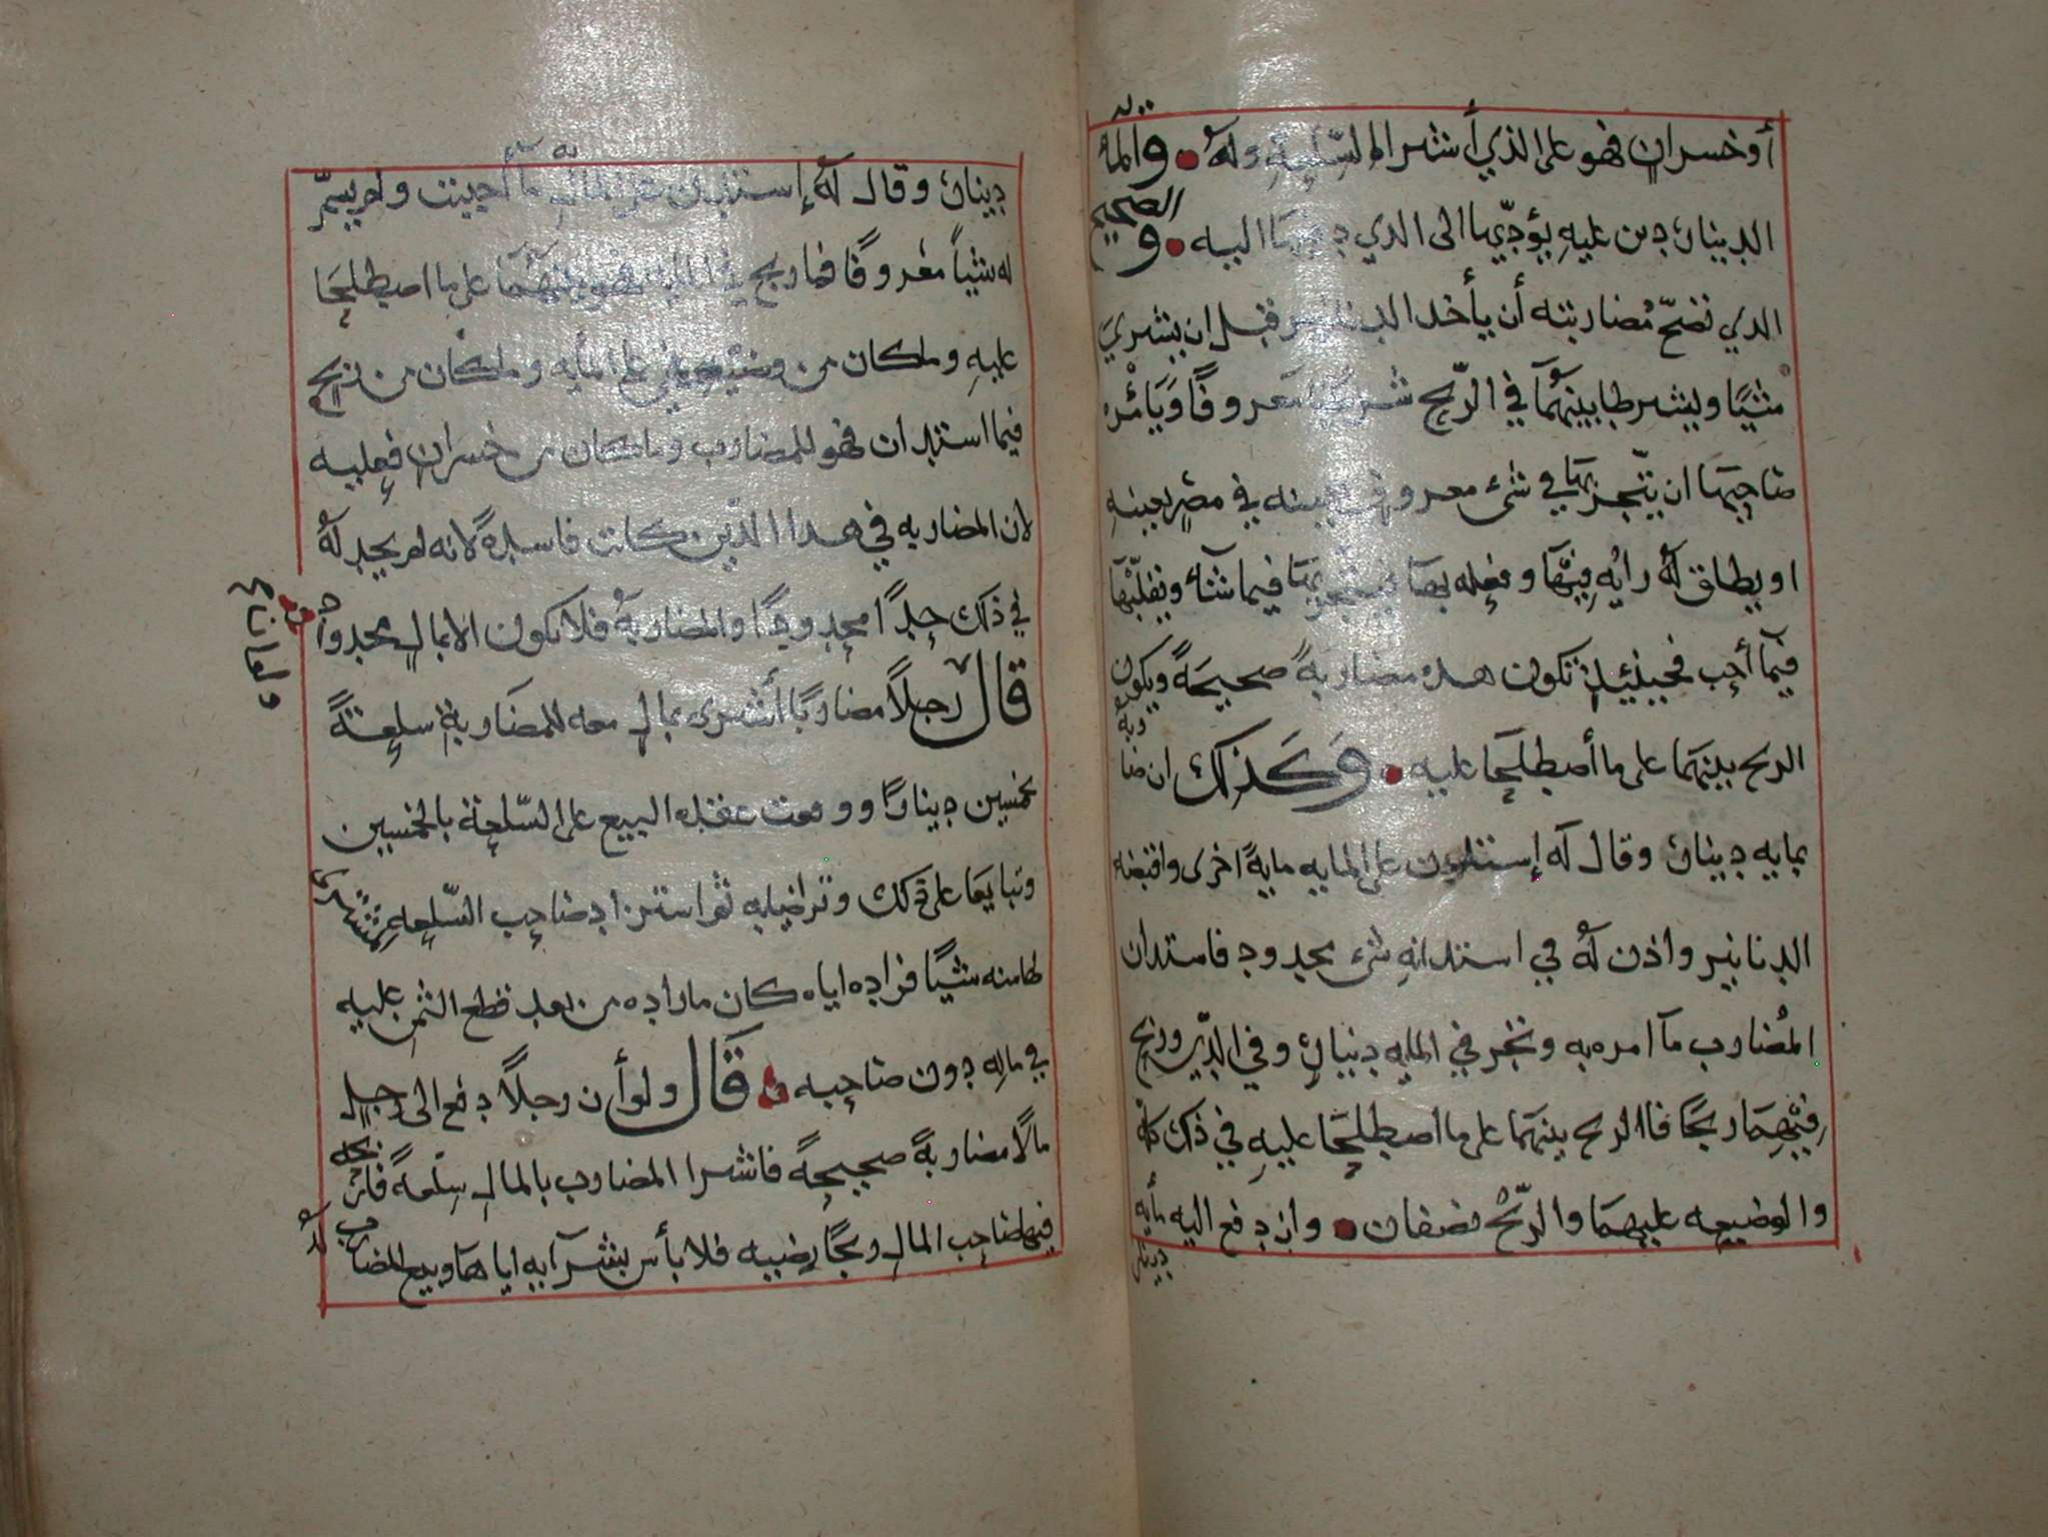 أو خسران فهو على الذي أشترا السلعة وله • والمأية
الدينار دين عليه يؤديها الى الذي دفعها اليه • والصحيح
الذي تصح مضاربته أن يأخذ الدنانير قبل ان يشري
شيًا ويشرطا بينهمآ في الربح شرطًا معروفًا ويأمره
صاحبها ان يتجر بها في شيء معروف بعينه في مصر بعينه
او يطلق له رايه فيها وفعله بها فيما شآء ويقلبها
فيمآ أحب فحينئيذ تكون هذه مضاربةً صحيحةً ويكون
الربح بينهما على ما أصطلحا عليه • وكذلك ان ضاربه
بمايه دينار وقال له إستدين على المايه مايةً اخرى واقبضه
الدنانير واذن له في استدانه شيء محدود فاستدان
المضارب مآ امره به وتجر في المايه دينارٍ وفي الدين وربح
فيهما ربحًا فاالربح بينهما على ما اصطلحا عليه في ذلك كله
والوضيعه عليهما والربح نصفان • وان دفع اليه مأيه دينار
دينار وقال له إستدين على المأيه مآ أحببت ولم يسم
له شيأً معروفًا فما ربح في المايه فهو بينهمآ على ما اصطلحا
عليه وماكان من وضيعه فهي على المأيه وماكان من ربح
فيما استدان فهو للمضارب وماكان من خسران فعليه
لان المضاربه في هذا الدين كانت فاسدةً لانه لم يحد له
في ذلك حدًا محدودًا والمضاربه فلا تكون الا بمالٍ محدود
ولو ان
قال رجلاً مضاربًا أشترى بمالٍ معه للمضاربة سلعةً
بخمسين دينارًا ووقعت عقده البيع على السلعة بالخمسين
وتبايعا على ذلك وتراضيا به ثم استزاد صاحب السلعه مشتري
لها منه شيًا فزاده اياه كان مازاده من بعد قطع الثمن عليه
في ماله دون صاحبه قال ولو أن رجلاً دفع الى رجلٍ
مالًا مضاربةً صحيحةً فاشترا المضارب بالمال سلعةً فاربحه
فيها صاحب المال ربحًا رضيه فلا بأس بشرآيه اياها وبيع المضارب له